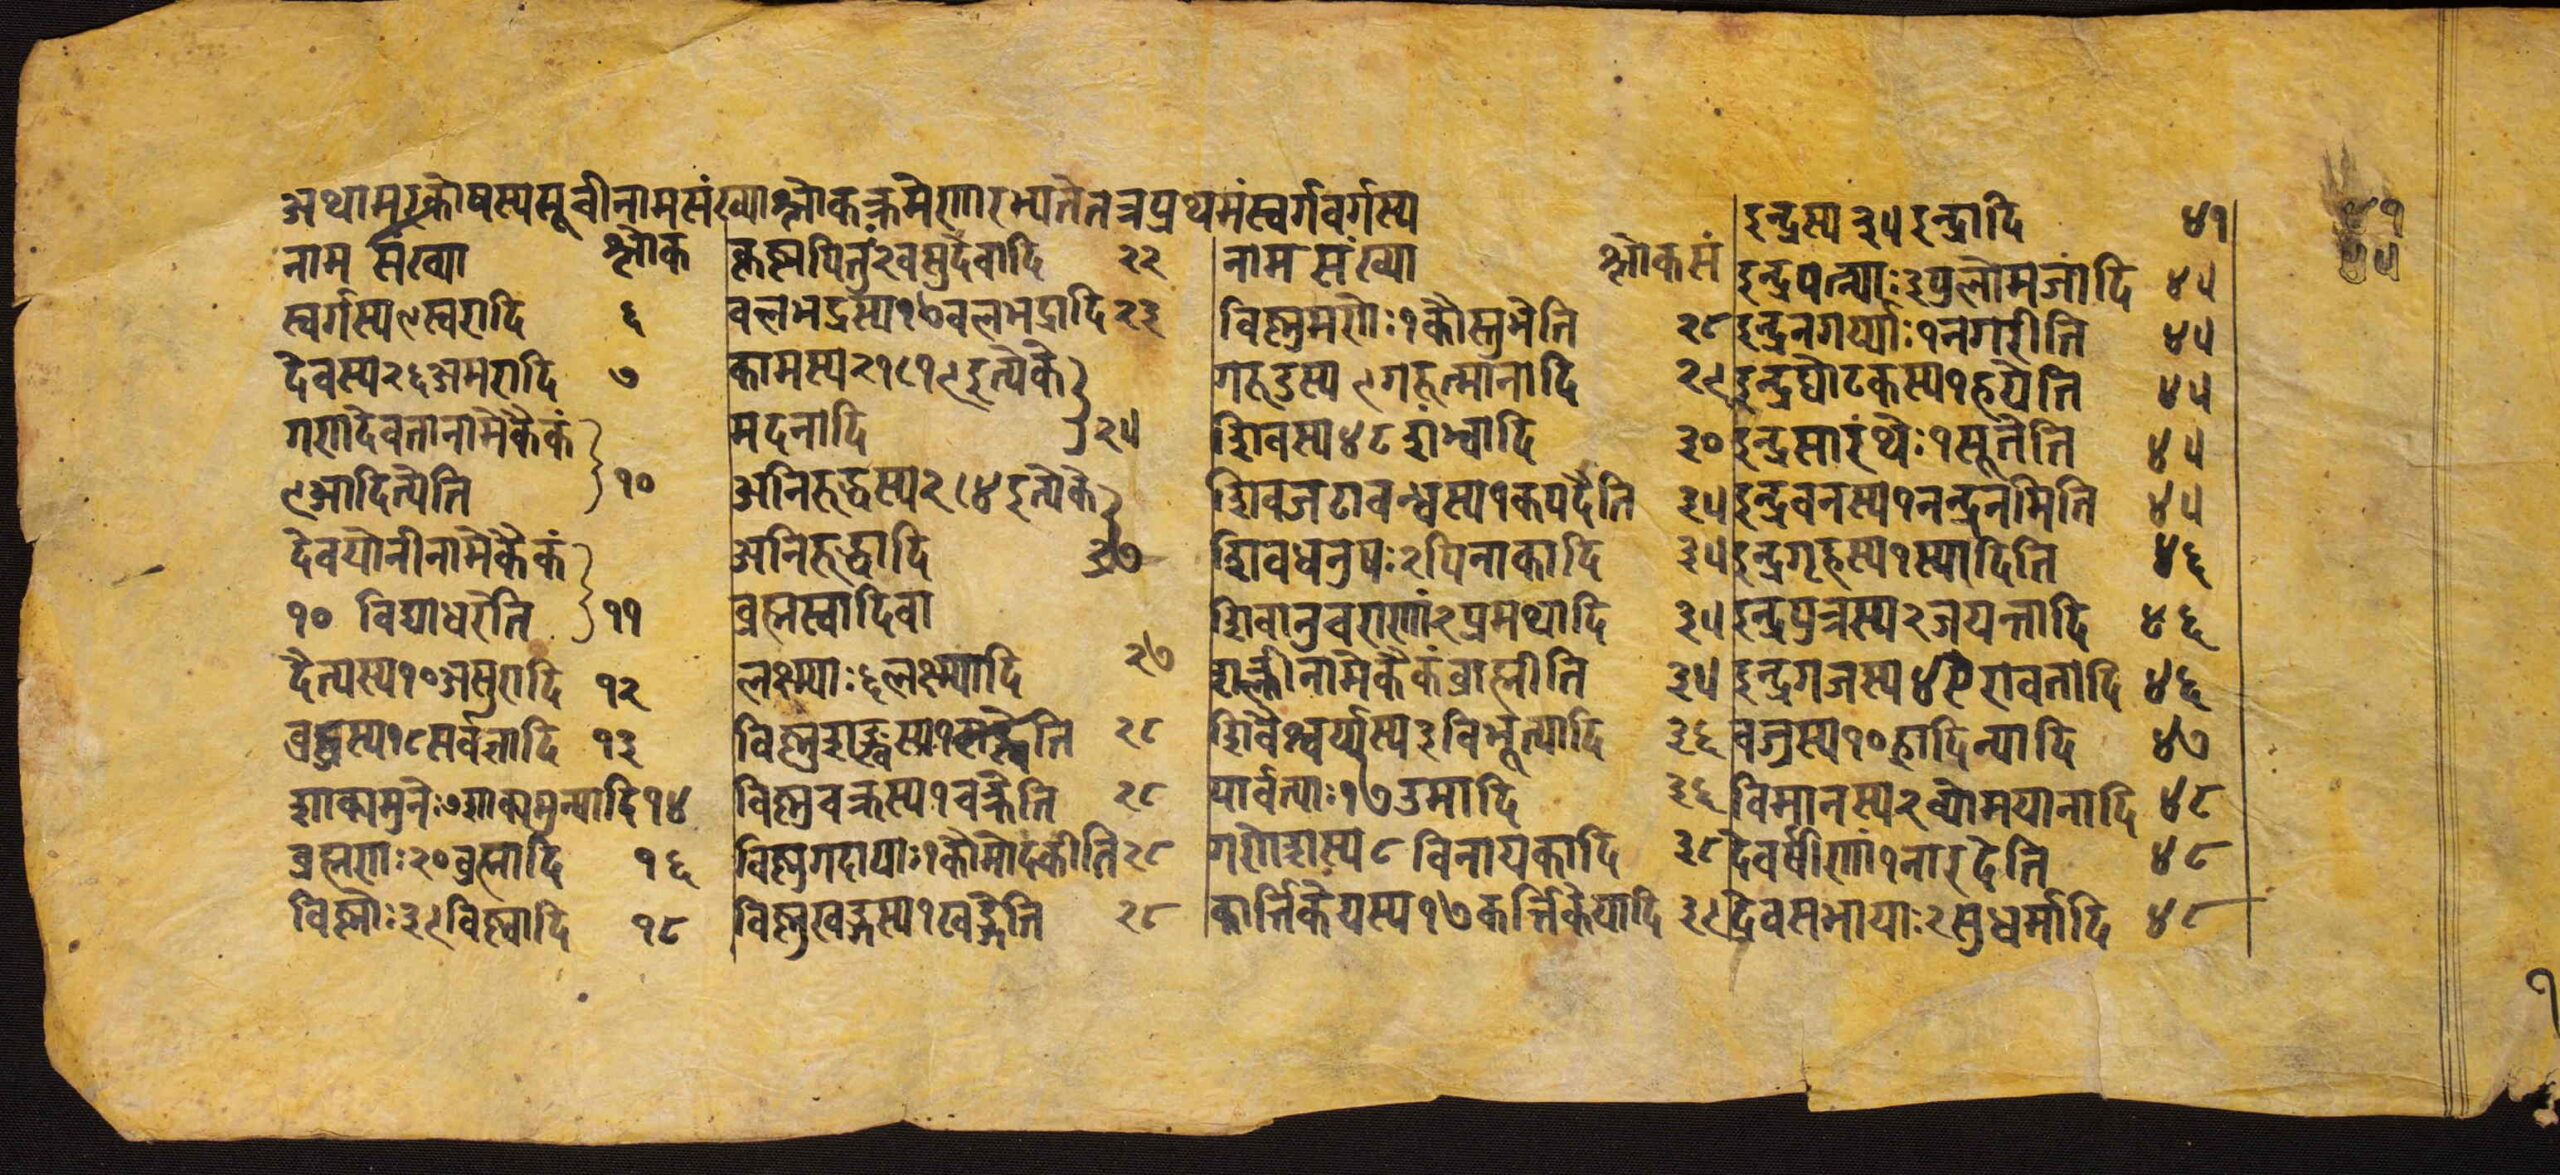 अथामरकोषस्यसूचीनामसंख्याश्लोकक्रमेणारभ्यतेतत्रप्रथमंस्वर्गवर्गस्य
नाम संख्या श्लोक
स्वर्गस्य९स्वरादि ६
देवस्य२६अमरादि ७
गणदेवतानामेकैकं
९आदित्येति १०
देवयोनीनामेकैकं
१० विद्याधरेति ११
दैत्यस्य१०असुरादि १२
बुद्धस्य१८सर्वज्ञादि १३
शाक्यमुनेः७शाक्यमुन्यादि १४
ब्रह्मणः२०ब्रह्मादि १६
विष्णोः३९विष्ण्वादि १८
कृष्णपितुः२वसुदेवादि २२
बलभद्रस्य१७बलभद्रादि २३
कामस्य२१।१९इत्येके
मदनादि २५
अनिरुद्धस्य२।४इत्येके
अनिरुद्धादि २७
ब्रह्मस्वादिवा
लक्ष्म्याः६लक्ष्म्यादि २७
विष्णुशङ्खस्य१शङ्खेति २८
विष्णुचक्रस्य१चक्रेति २८
विष्णुगदायाः१कौमोदकीति २८
विष्णुखड्गस्य१खड्गेति २८
नाम संख्या श्लोकसं
विष्णुमणेः१कौस्तुभेति २८
गरुडस्य९गरुत्मानादि २९
शिवस्य४८शंभ्वादि ३०
शिवजटाबन्धस्य१कपर्देति ३५
शिवधनुषः२पिनाकादि ३५
शिवानुचराणां२प्रमथादि ३५
शक्तीनामेकैकंब्राह्मीति ३५
शिवैश्वर्य्यस्य३विभूत्यादि ३६
पार्वत्याः१७उमादि ३६
गणेशस्य८विनायकादि ३८
कार्त्तिकेयस्य१७कार्त्तिकेयादि ३९
इन्द्रस्य३५इन्द्रादि ४१
इन्द्रपत्न्याः३पुलोमजादि ४५
इन्द्रनगर्य्याः१नगरीति ४५
इन्द्रघोटकस्य१हयेति ४५
इन्द्रसारथेः१सूतेति ४५
इन्द्रवनस्य१नन्दनमिति ४५
इन्द्रगृहस्य१स्यादिति ४६
इन्द्रपुत्रस्य२जयन्तादि ४६
इन्द्रगजस्य४ऐरावतादि ४६
वज्रस्य१०ह्रादिन्यादि ४७
विमानस्य२व्योमयानादि ४८
देवर्षीणां१नारदेति ४८
देवसभायाः२सुधर्मादि ४८
१